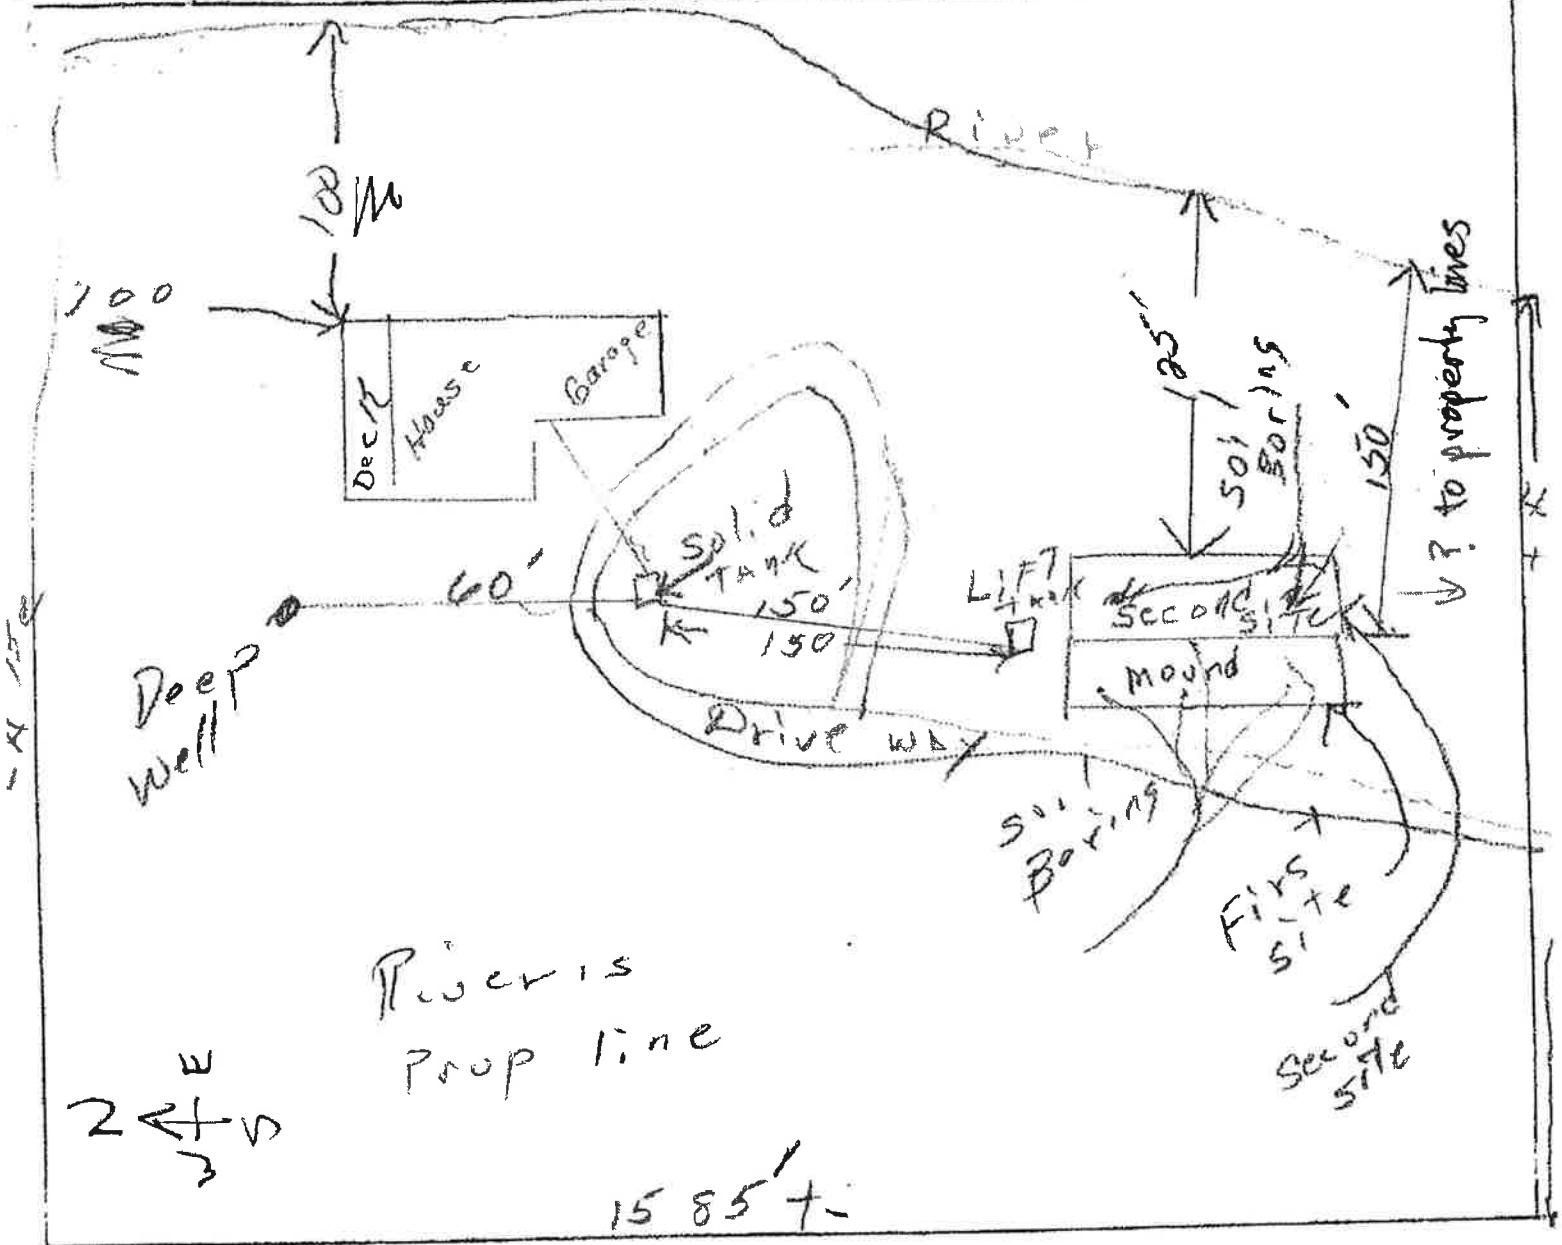 River
100
Deck
House
Garage
125'
Soil
Boring
150'
? to property lines
60'
Solid
Tank
150'
150
Lift
Tank
Second
Site
Mound
Deep
Well
Drive way
Soil
Boring
Firs
Site
Second
Site
River is
Prop line
N
E
S
W
1585' +-